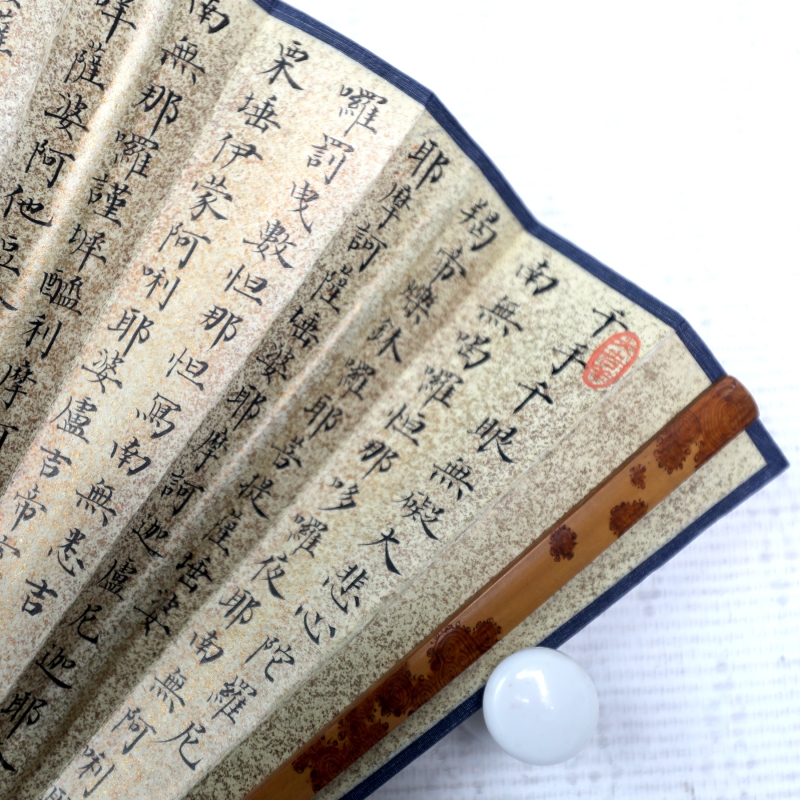 千手千眼無礙大悲心陀羅尼
南無喝囉怛那哆囉夜耶南無阿唎
羯帝爍鉢羅耶菩提薩埵婆
耶摩訶薩埵婆耶摩訶迦盧尼迦耶
囉罰曳數怛那怛寫南無悉吉
栗埵伊蒙阿唎耶婆盧吉帝
南無那囉謹墀醯利摩訶
薩婆阿他豆